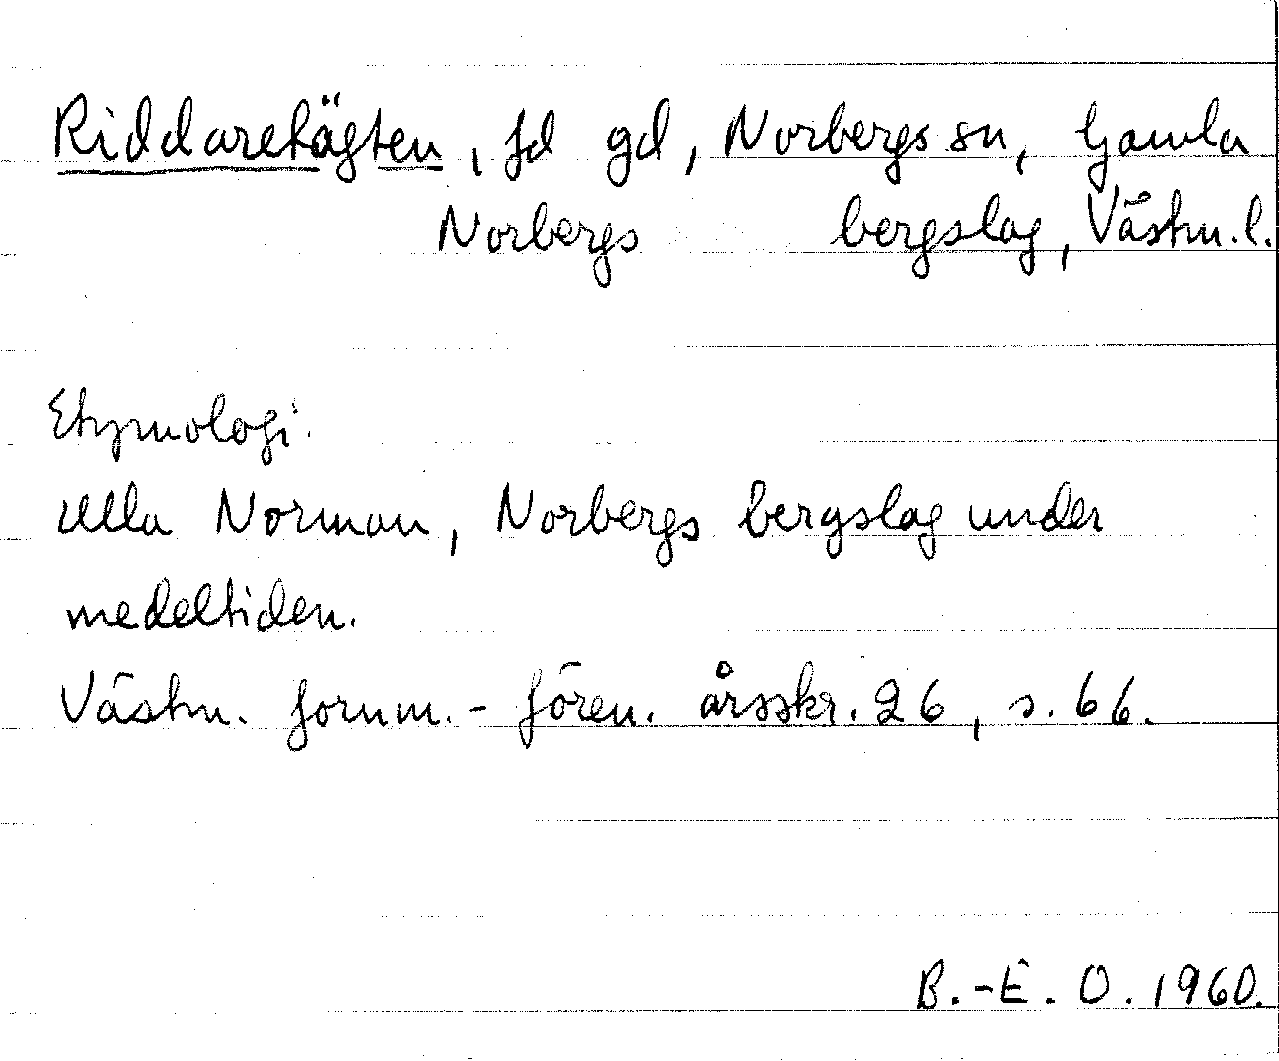 Riddaretägten, fd gd, Norbergs sn, Gamla
Norbergs bergslag, Västm. l.
Etymologi.
Ulla Norman, Norbergs bergslag under
medeltiden.
Västm. fornm.- fören. årsskr. 26, s. 66.
B.-E. O. 1960.